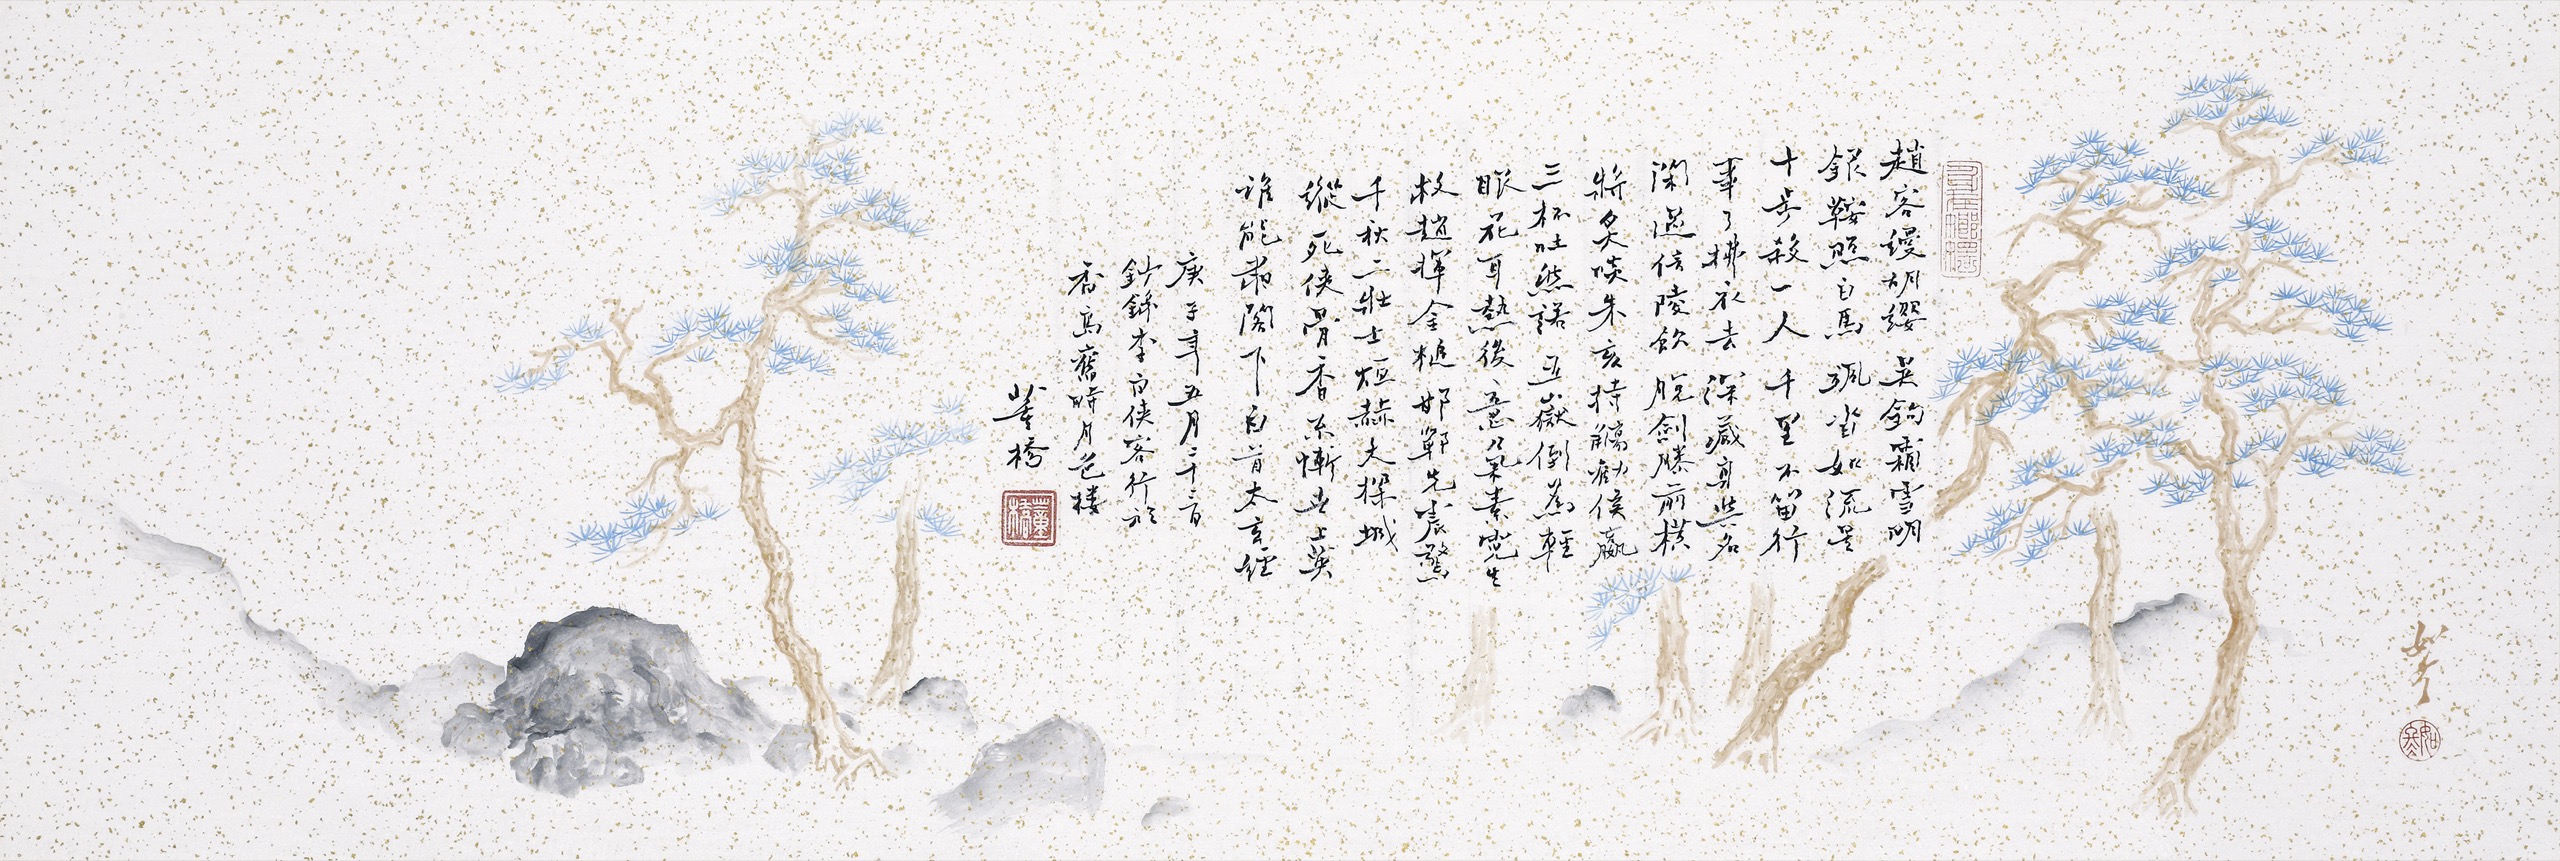 趙客縵胡纓 吳鉤霜雪明
銀鞍照白馬 颯沓如流星
十步殺一人 千里不留行
事了拂衣去 深藏身與名
閑過信陵飲 脫劍膝前橫
將炙啖朱亥 持觴勸侯嬴
三杯吐然諾 五嶽倒為輕
眼花耳熱後 意氣素霓生
救趙揮金槌 邯鄲先震驚
千秋二壯士 烜赫大樑城
縱死俠骨香 不慚世上英
誰能書閣下 白首太玄經
庚子年五月二十三日
鈔錄李白俠客行於
香島舊時月色樓
董橋
董橋